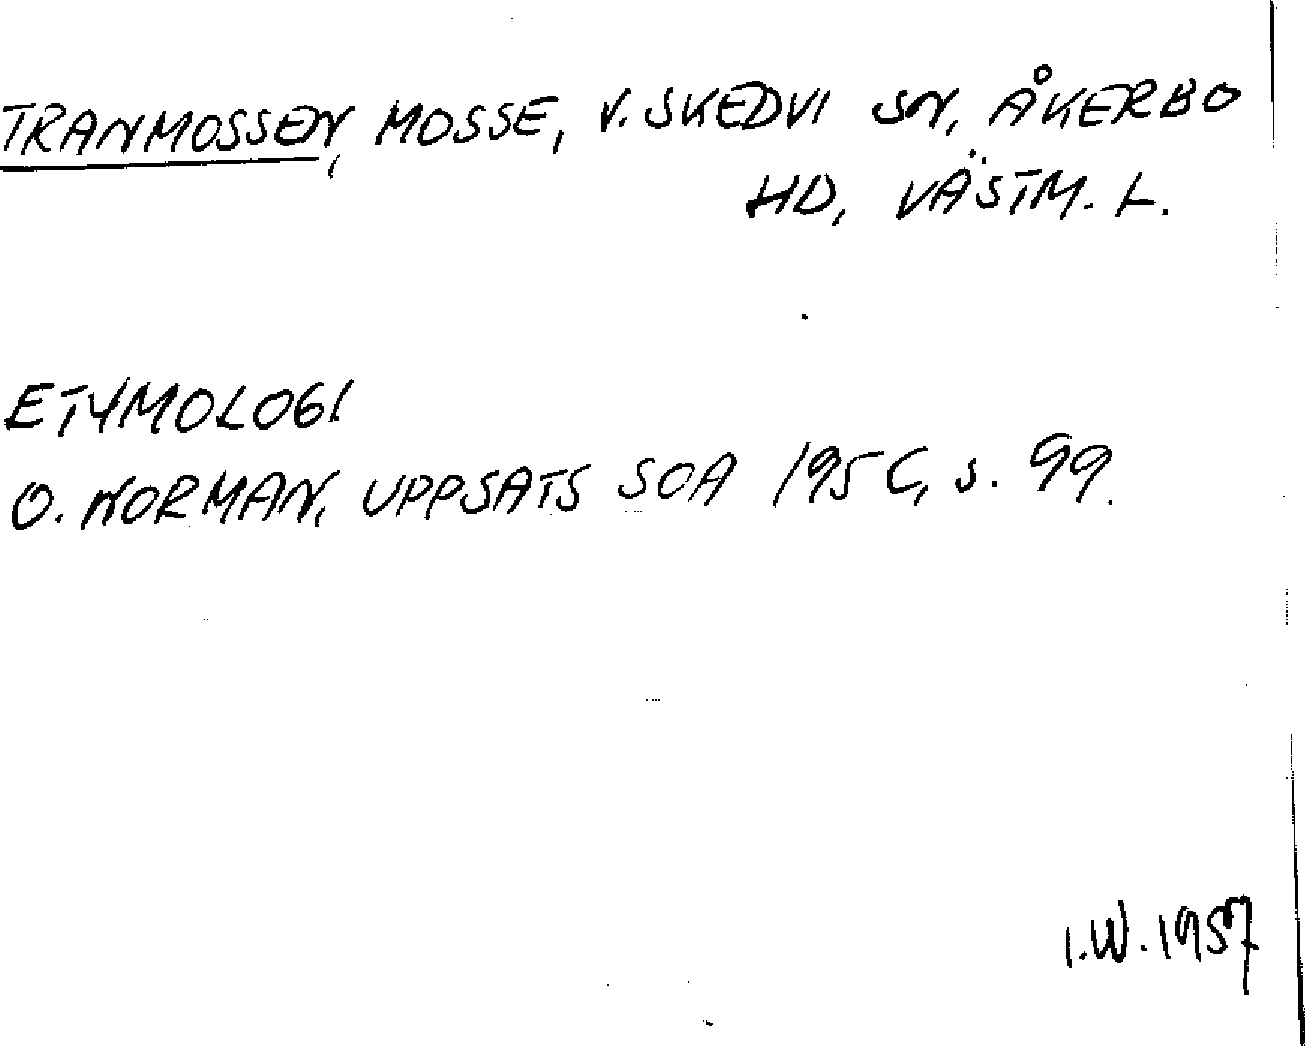 TRANMOSSEN, MOSSE, V. SKEDVI SN, ÅKERBO
HD, VÄSTM. L.
ETYMOLOGI
O. NORMAN, UPPSATS SOA 1956, s. 99.
I.W. 1957